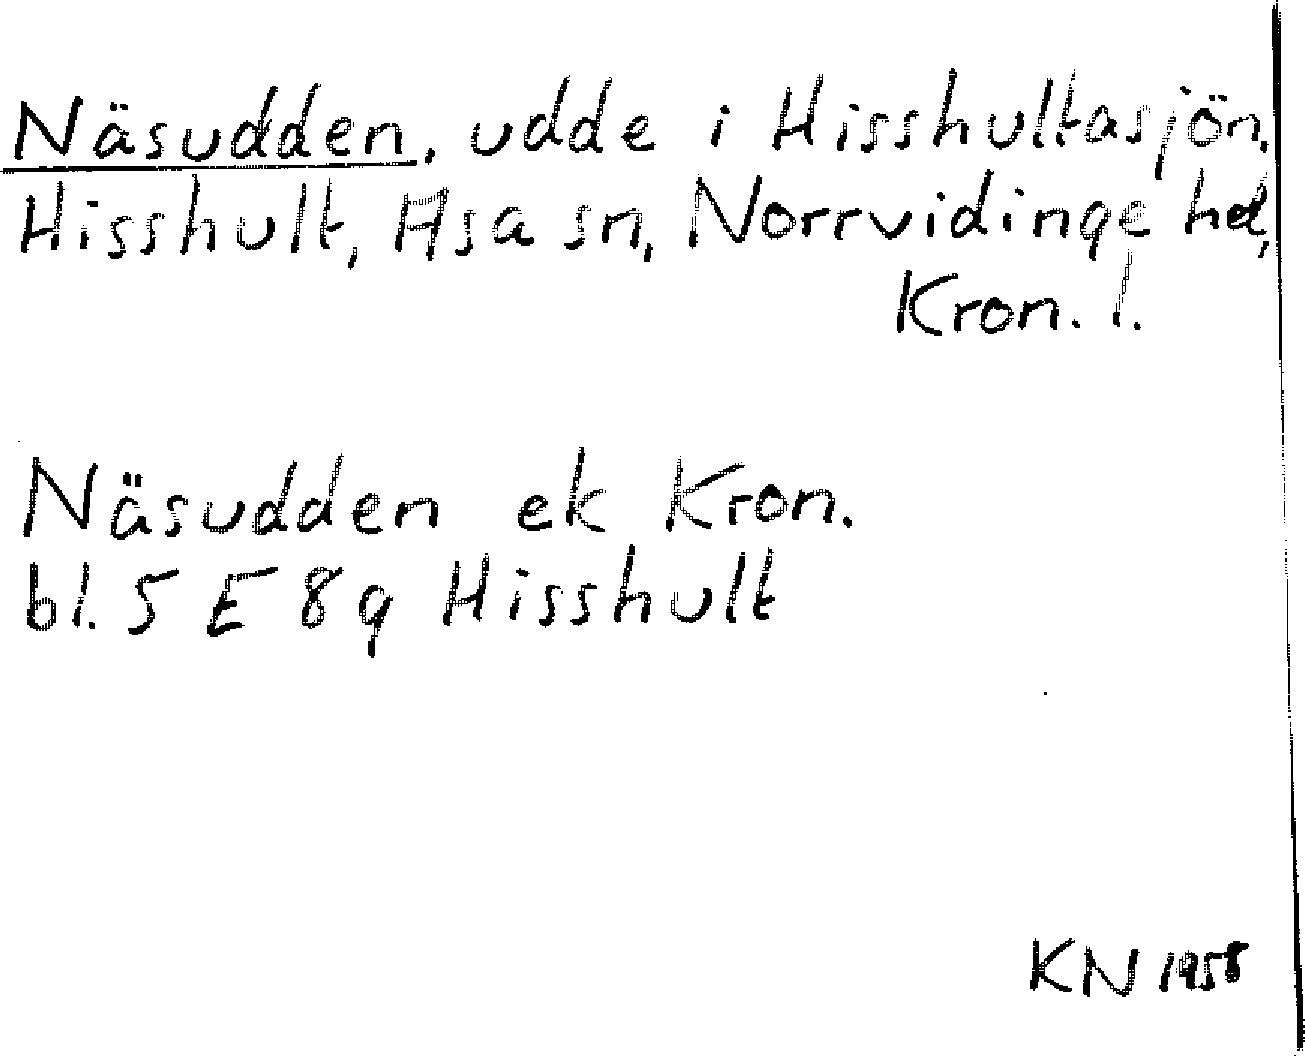 Näsudden, udde i Hisshultasjön,
Hisshult, Asa sn, Norrvidinge hd,
Kron. l.
Näsudden ek Kron.
bl. 5 E 8 g Hisshult
KN 1958